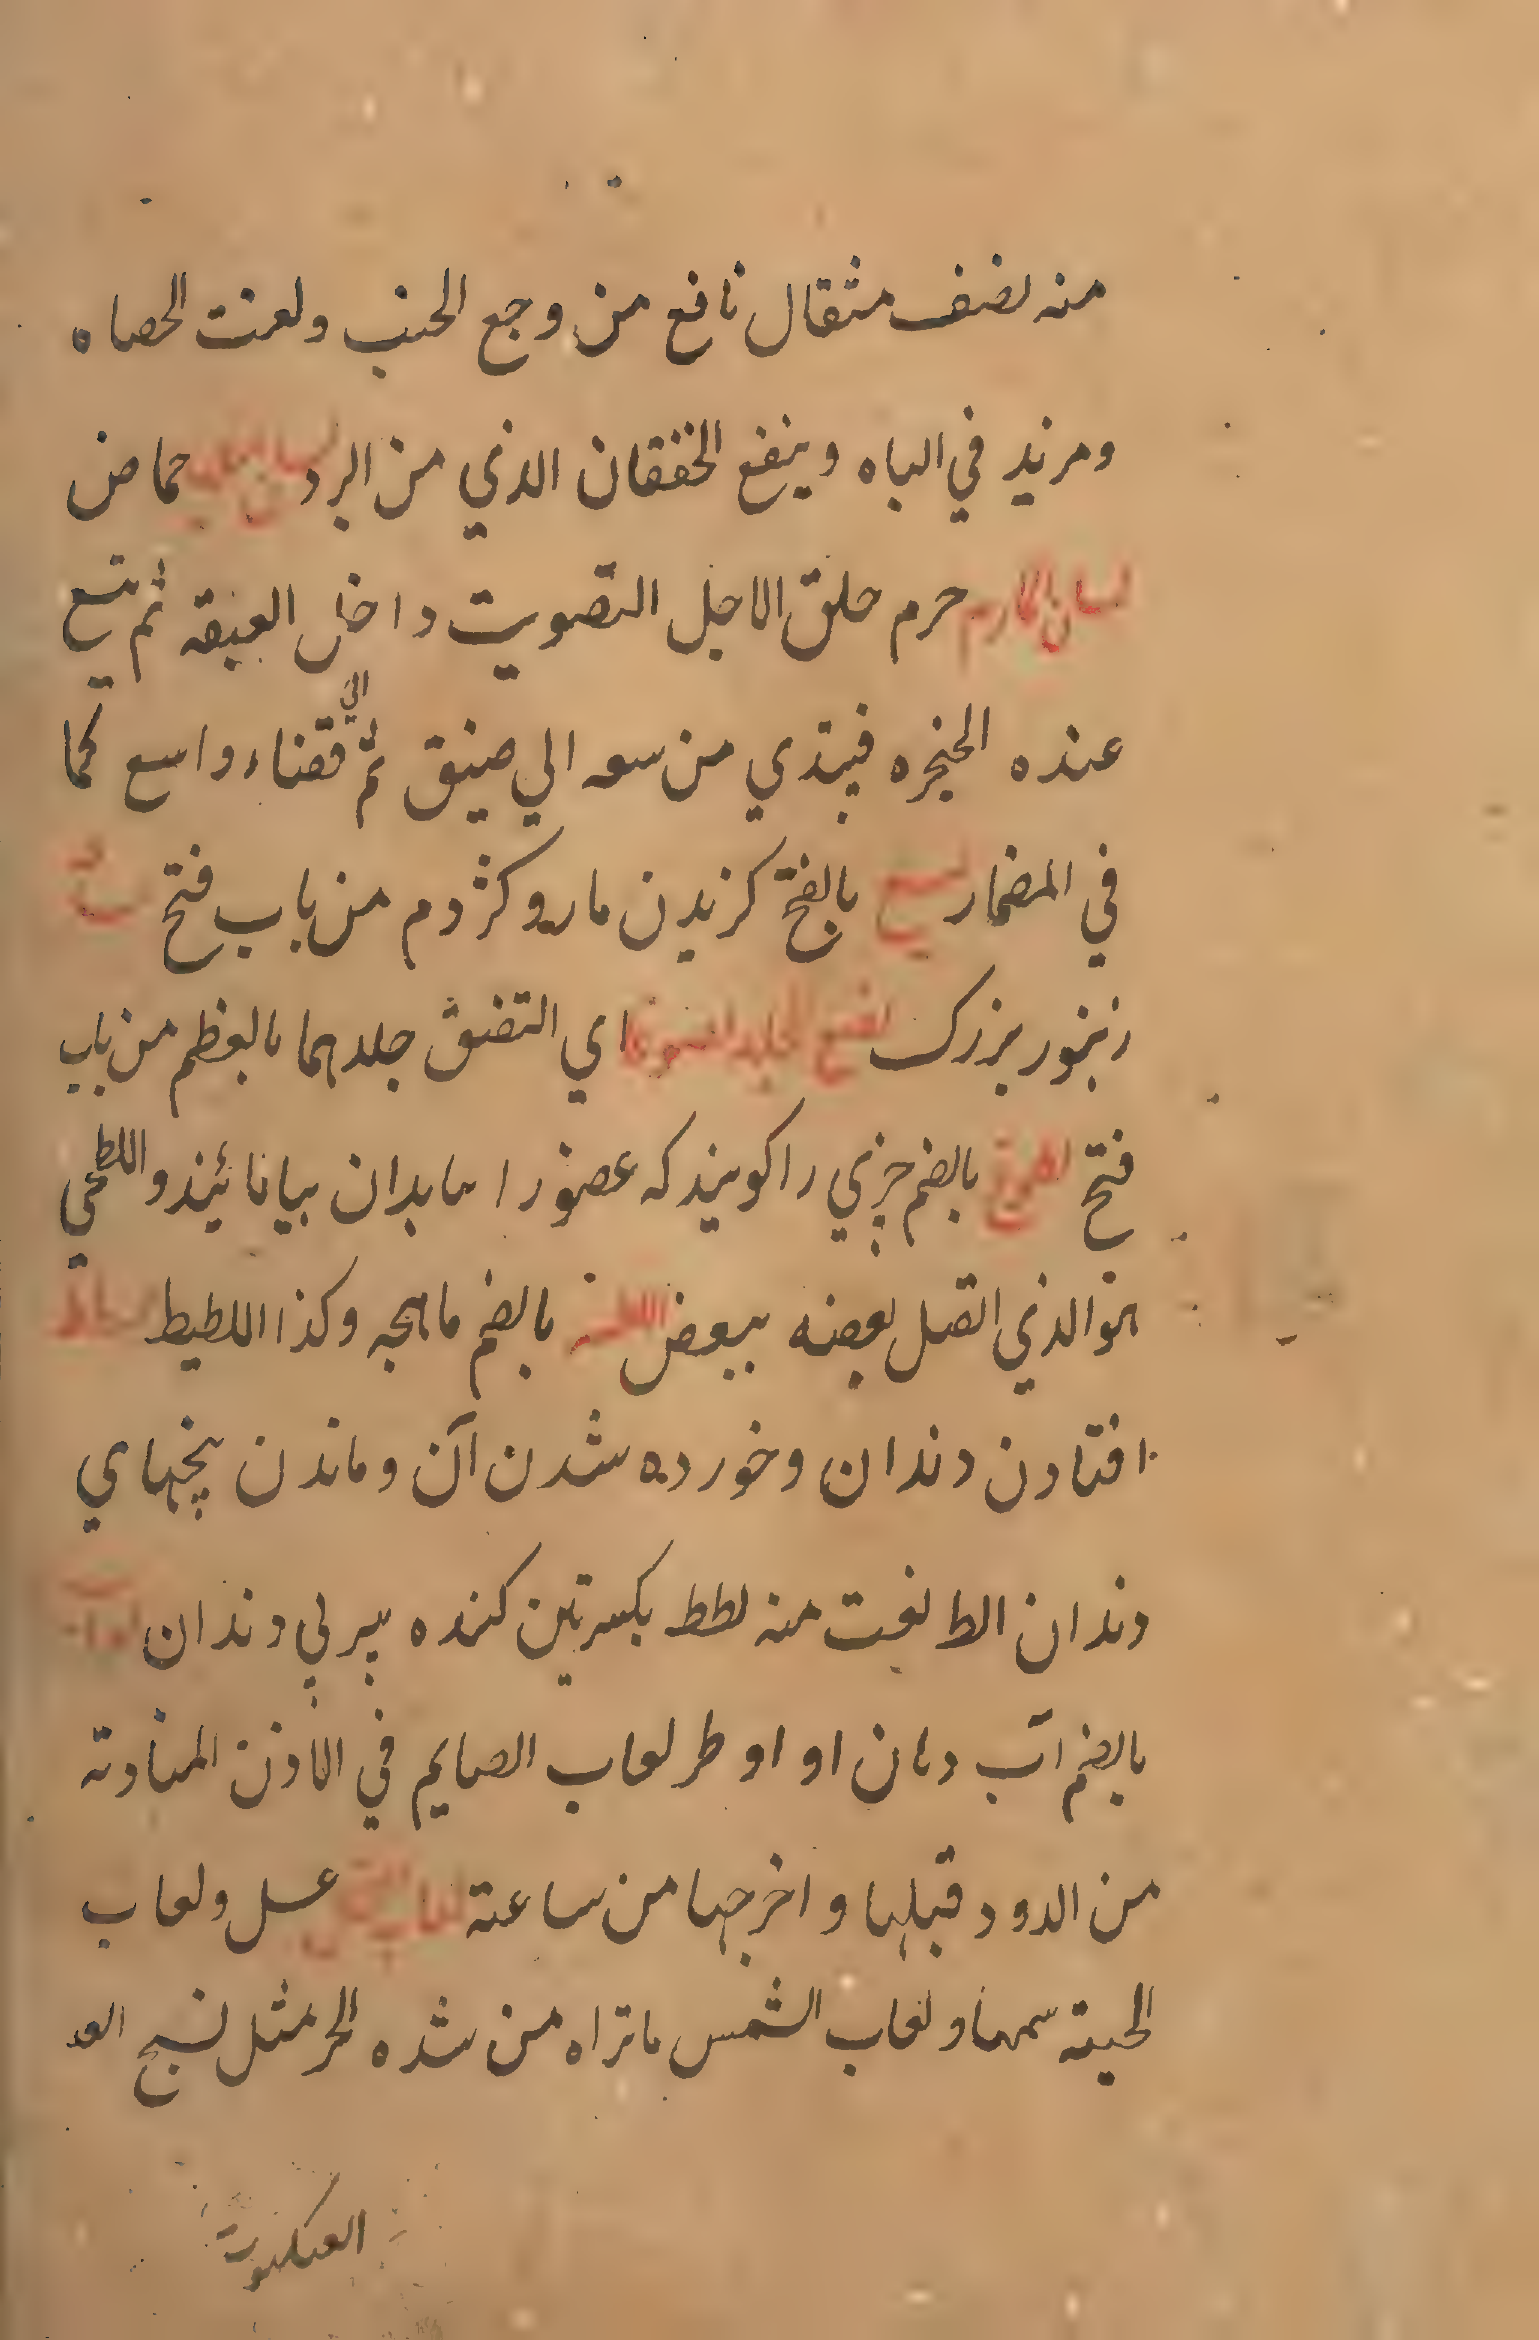 منه نصف مثقال نافع من وجع الجنب ولعنت الحصاه
ومزيد في الباه وينفع الخفقان الذي من البرد حماض
لسان المزمار جرم حلق الاجل التصويت داخل القبيقه ثم يتسع
عنده الحنجره فيبتدي من سعه الي ضيق ثم الي فضاء واسع كما
في المضمار لسع بالفتح كزيدن مار وكژدم من باب فتح
زنبور بزرك لصق الجلد اي التصق جلدهما بالعظم من باب
فتح لطوخ بالضم چيزي را كويند كه عضو را بدان بيالايند واللطخي
هو الذي اتصل بعضه ببعض بالضم ماهجه وكذا اللطيط
افتادن دندان وخورده شدن آن وماندن بيخهاي
دندان الط نعت منه لطط بكسرتين كنده پير بي دندان لعاب
بالضم آب دهان او او طر لعاب الصايم في الاذن المتاذية
من الدود قتلها واخرجها من ساعته لعاب النحل عسل ولعاب
الحية سمها ولعاب الشمس ما تراه من شده الحر مثل نسج العد
العنكبوت